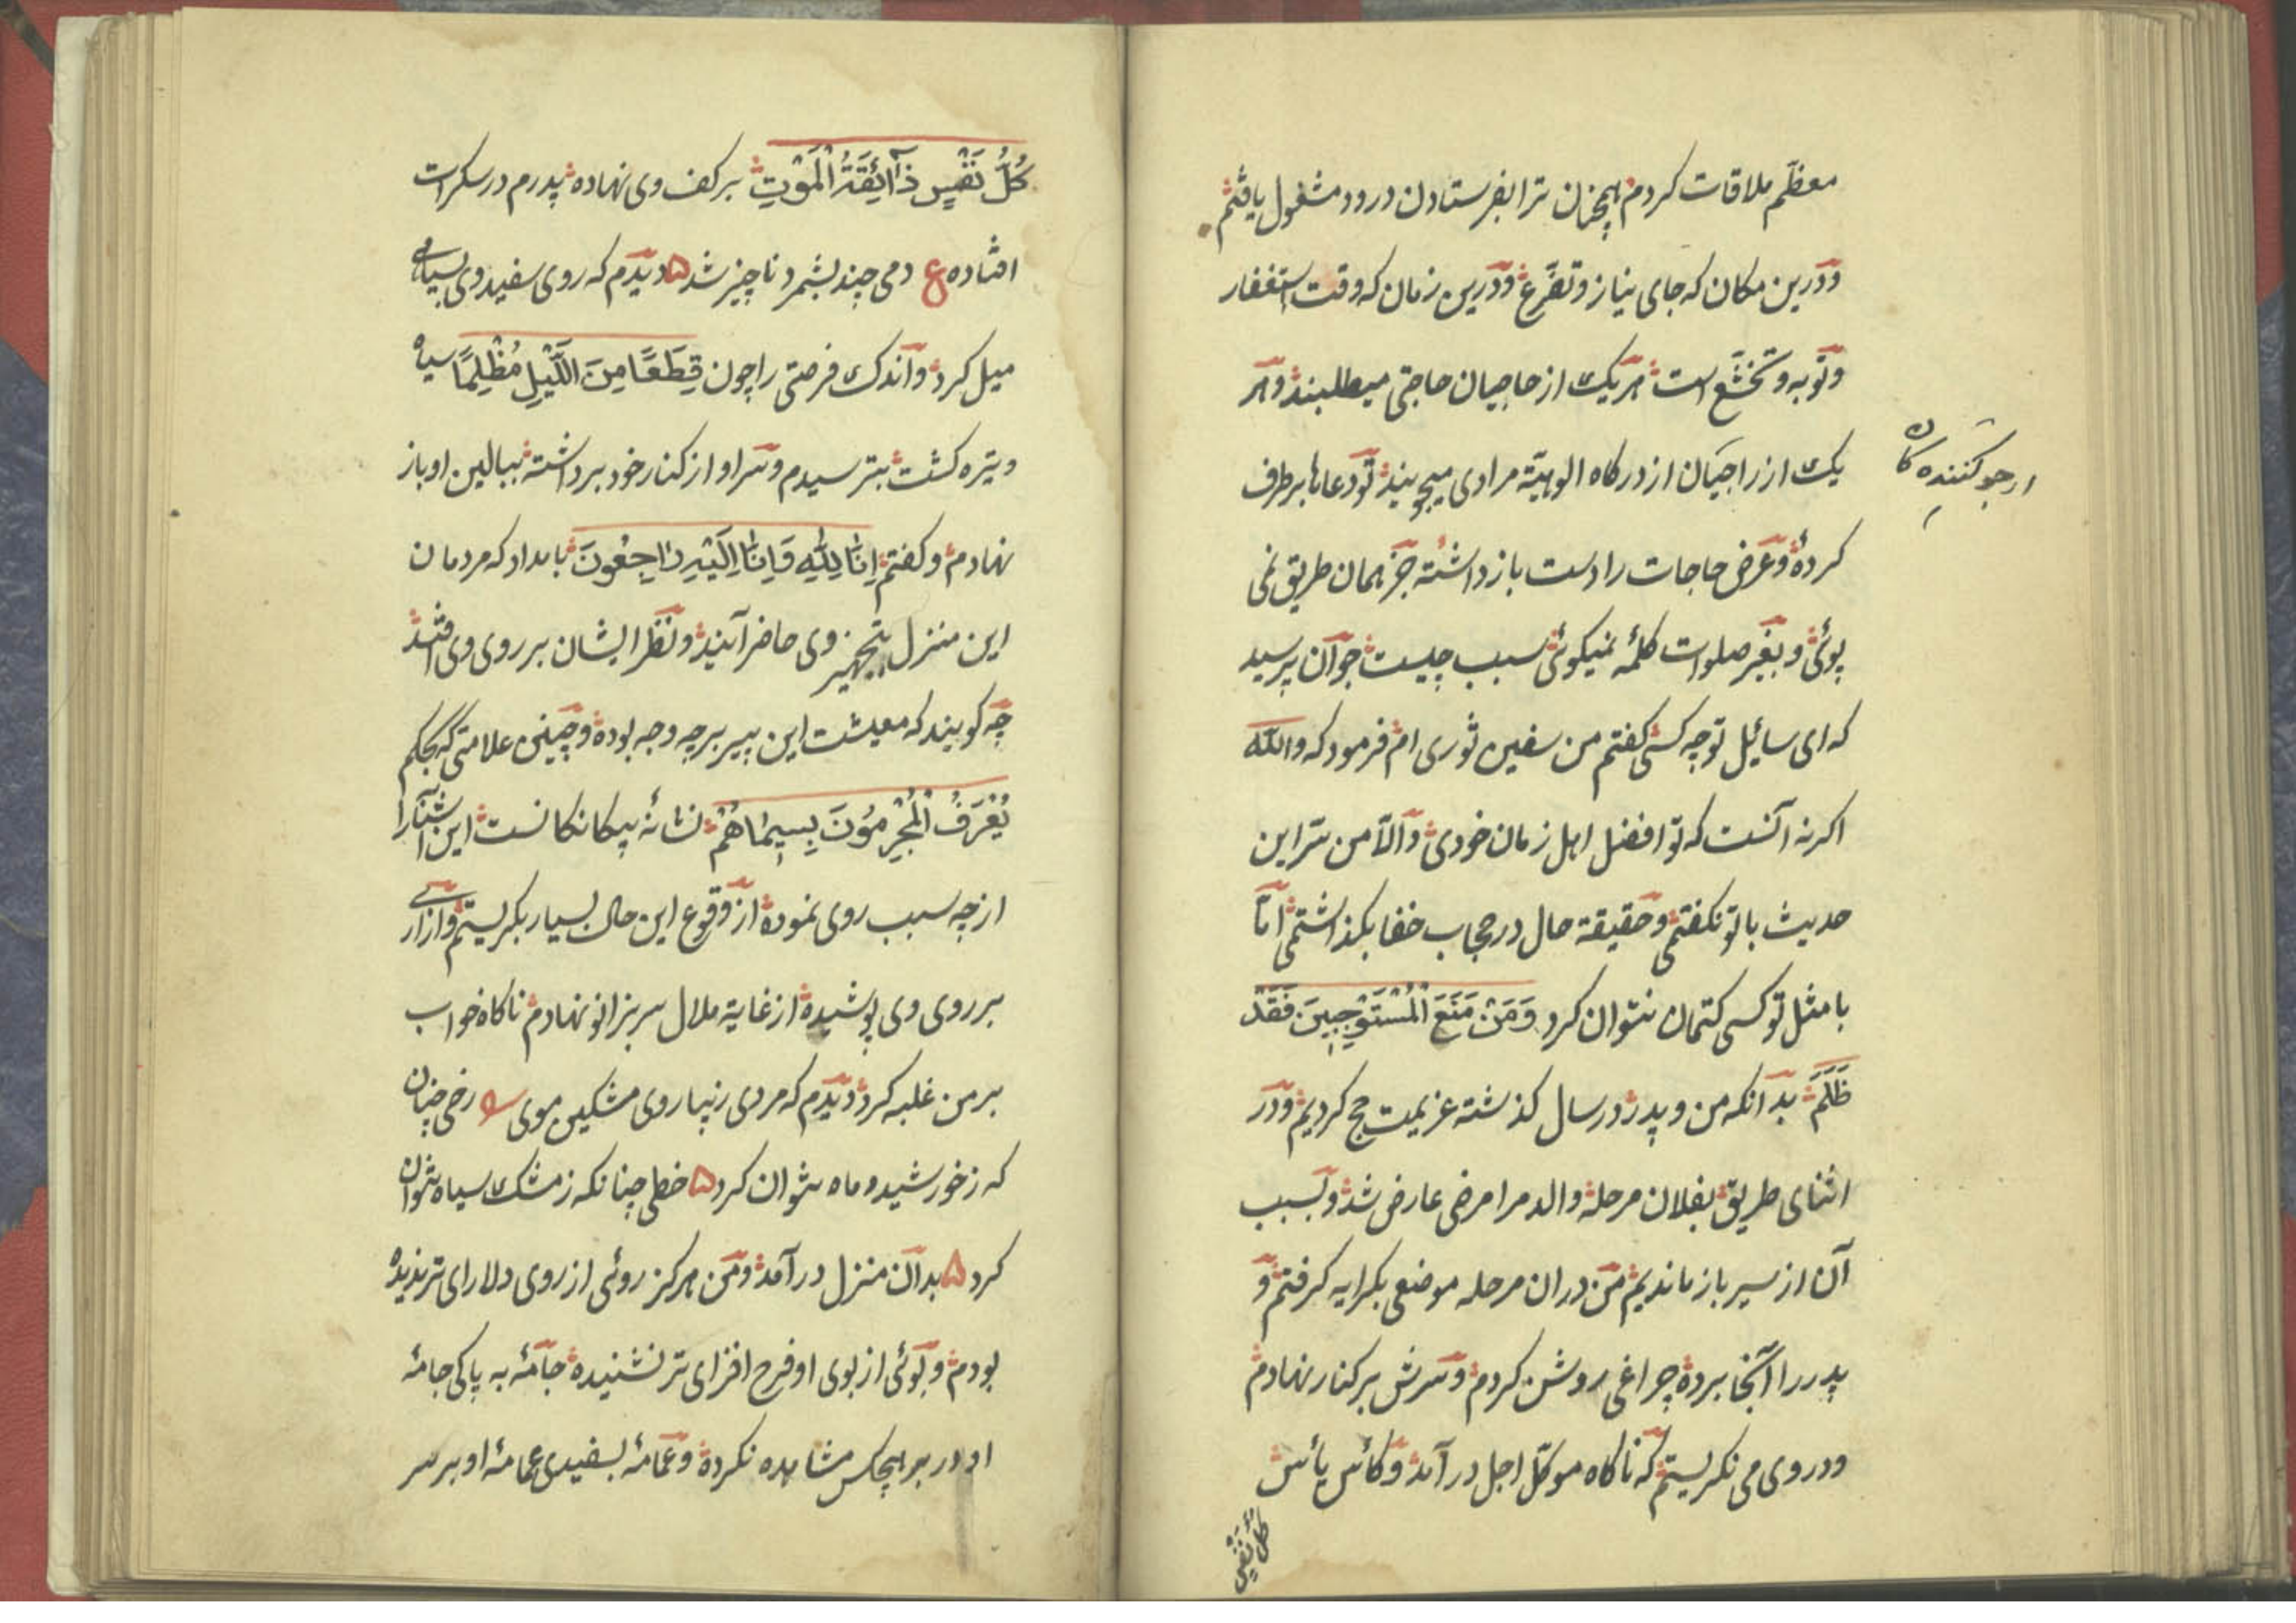 معظّم ملاقات کردم همچنان ترا بفرستادن درود مشغول یافتم
ودرین مکان که جای نیاز وتضرّع ودرین زمان که وقت استغفار
وتوبه وتخشّع است هر یک از حاجیان حاجتی میطلبند وهر
یک از راجیان از درکاه الوهیّة مرادی میجویند تو دعاها برطرف
کردهٔ وعرض حاجات را دست باز داشته جز همان طریق نمی
پوئی وبغیر صلوات کلمهٔ نمیکوئی سبب چیست جوان پرسید
که ای سائیل تو چه کسی کفتم من سفین ثوری ام فرمود که والله
اکر نه آنست که تو افضل اهل زمان خودی والّا من سرّ این
حدیث با تو نکفتمی وحقیقة حال در حجاب خفا بکذاشتمی امّا
با مثل تو کسی کتمان نتوان کرد وَمَنْ مَنَعَ الْمُسْتَوْجِبِينَ فَقَدْ
ظَلَمَ بدانکه من وپدر در سال کذشته عزیمت حج کردیم ودر
اثنای طریق بفلان مرحله والد مرا مرضی عارض شد وبسبب
آن از سیر باز ماندیم من دران مرحله موضعی بکرایه کرفتم و
پدر را آنجا برده چراغی روشن کردم وسرش بر کنار نهادم
ودر وی می نکریستم که ناکاه موکّل اجل در آمد وکأس یأس
کلّ نفس
ارجو کننده کان
كُلُّ نَفْسٍ ذَائِقَةُ الْمَوْتِ بر کف وی نهاده پدرم در سکرات
افتاده ع دمی چند بشمرد ناچیز شد ۵ دیدم که روی سفید وی بسیاهی
میل کرد واندک فرصتی را چون قِطَعًا مِنَ اللَّيْلِ مُظْلِمًا سیاه
وتیره کشت بترسیدم وسر او از کنار خود برداشته ببالین او باز
نهادم وکفتم اِنَّا لِلّٰهِ وَاِنَّا اِلَيْهِ رَاجِعُونَ بامداد که مردمان
این منزل بتجهیز وی حاضر آیند ونظر ایشان بر روی وی افتد
چه کویند که معیشت این پیر بر چه وجه بوده وچنین علامتی که بحکم
يُعْرَفُ الْمُجْرِمُونَ بِسِيمَاهُمْ نشانهٔ بیکانکانست این آشنا را
از چه سبب روی نموده از وقوع این حال بسیار بکریستم وازاری
بر روی وی پوشیده از غایة ملال سر بزانو نهادم ناکاه خواب
بر من غلبه کرد ودیدم که مردی زیبا روی مشکین موی رخی چنان
که ز خورشید وماه نتوان کرد ۵ خطی چنانکه ز مشک سیاه نتوان
کرد ۵ بدان منزل در آمد ومن هرکز روئی از روی دلارای تر ندیده
بودم وبوئی از بوی او فرح افزای تر نشنیده جامهٔ به پاکی جامهٔ
او در بر هیچکس مشاهده نکرده وعمامهٔ بسفیدی عمامهٔ او بر سر